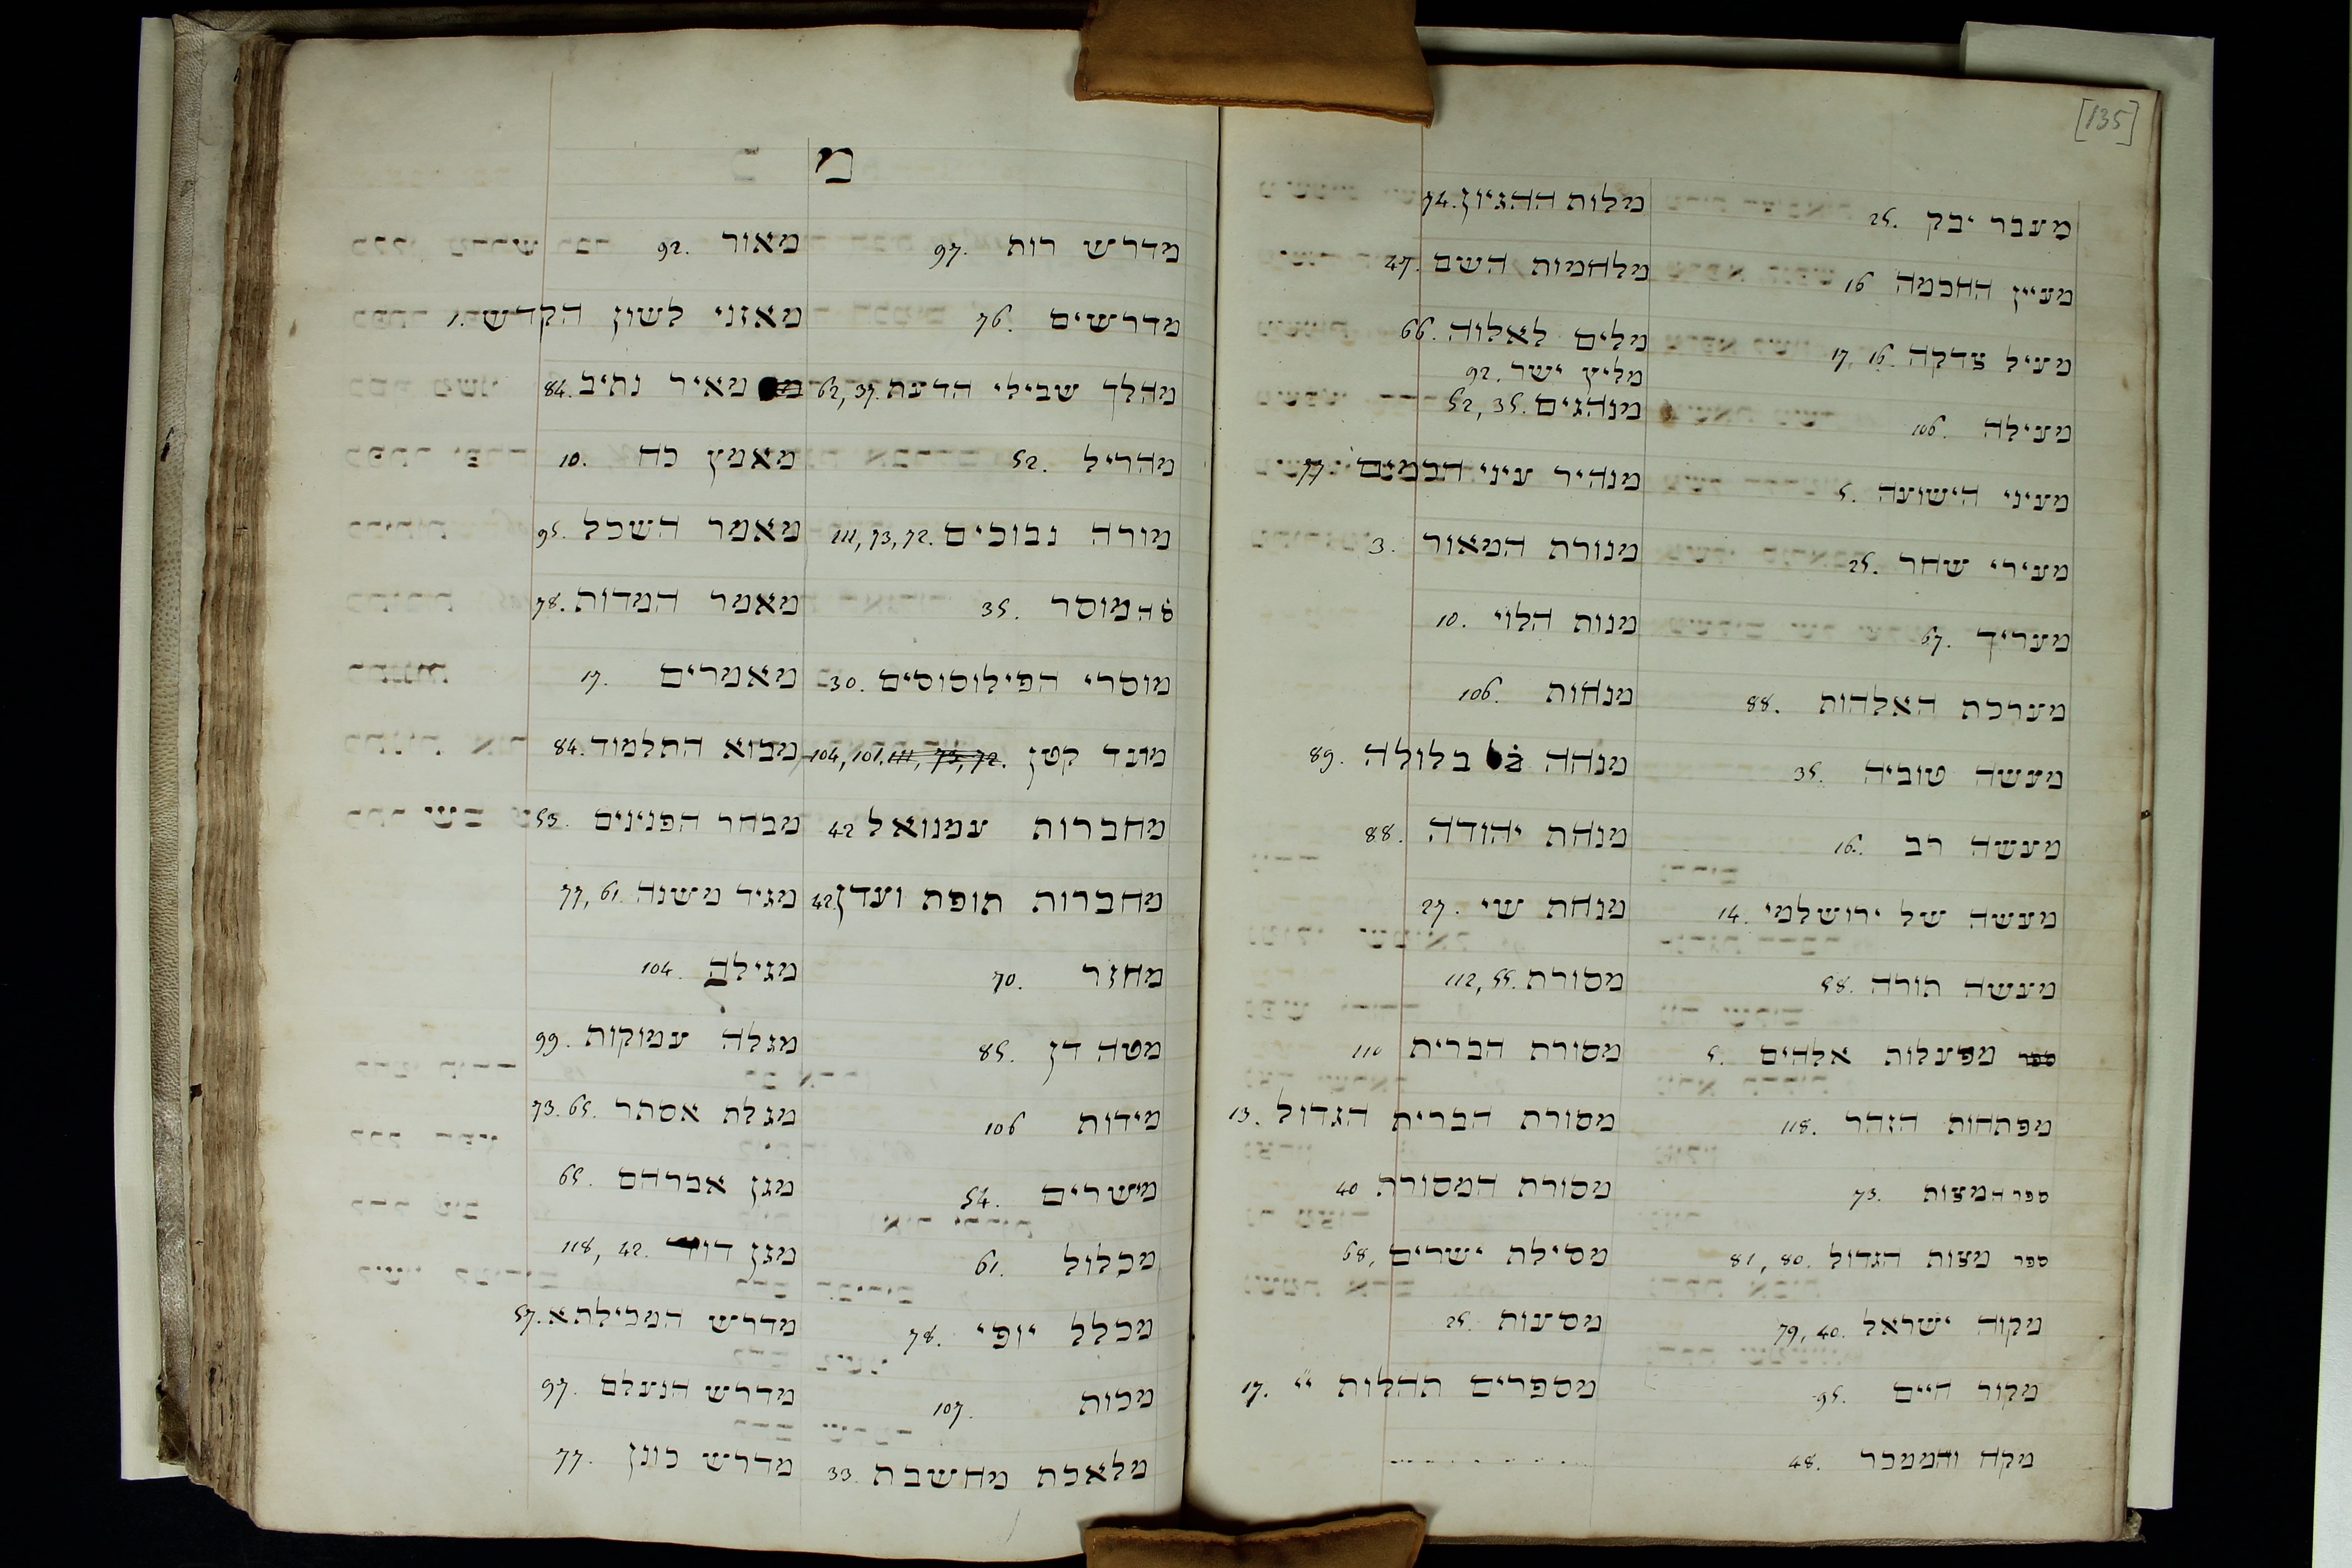 מ
מאור 92.
מאזני לשון הקדש 1.
מאיר נתיב 84.
מאמץ כח 10.
מאמר השכל 95.
מאמר המדות 78.
מאמרים 17.
מבוא התלמוד 84.
מבחר הפנינים 53.
מגיד משנה 77, 61.
מגילה 104.
מגלה עמוקות 99.
מגלת אסתר 73. 65.
מגן אברהם 65.
מגן דוד 118, 42.
מדרש המכילתא 57.
מדרש הנעלם 97.
מדרש כונן 77.
מדרש רות 97.
מדרשים 76.
מהלך שבילי הדעת 62, 37.
מהריל 52.
מורה נבוכים 111, 73, 72.
ס' המוסר 35.
מוסרי הפילוסוסים 30.
מועד קטן 104, 101. 111, 73, 72.
מחברות עמנואל 42
מחברות תופת ועדן 42.
מחזר 70.
מטה דן 85.
מידות 106
מישרים 54.
מכלול 61.
מכלל יופי 78.
מכות 107.
מלאכת מחשבת 33.
[135]
מלות ההגיון 74.
מלחמות השם 47.
מלים לאלוה 66.
מליץ ישר 92.
מנהגים 52, 35.
מנהיר עיני חכמים 77
מנורת המאור 3.
מנות הלוי 10.
מנחות 106.
מנחה בלולה 89.
מנחת יהודה 88.
מנחת שי 27.
מסורת 112, 55.
מסורת הברית 110
מסורת הברית הגדול 13.
מסורת המסורת 40
מסילת ישרים 68,
מסעות 25.
מספרים תהלות יי 17.
מעבר יבק 25.
מעיין החכמה 16
מעיל צדקה 17, 16.
מעילה 106.
מעיני הישועה 5.
מעירי שחר 25.
מעריך 67.
מערכת האלהות 88.
מעשה טוביה 35.
מעשה רב 16.
מעשה של ירושלמי 14.
מעשה תורה 58.
ספר מפעלות אלהים 5.
מפתחות הזהר 118.
ספר המצות 73.
ספר מצות הגדול 81, 80.
מקוה ישראל 79, 40.
מקור חיים 95.
מקח והממכר 48.